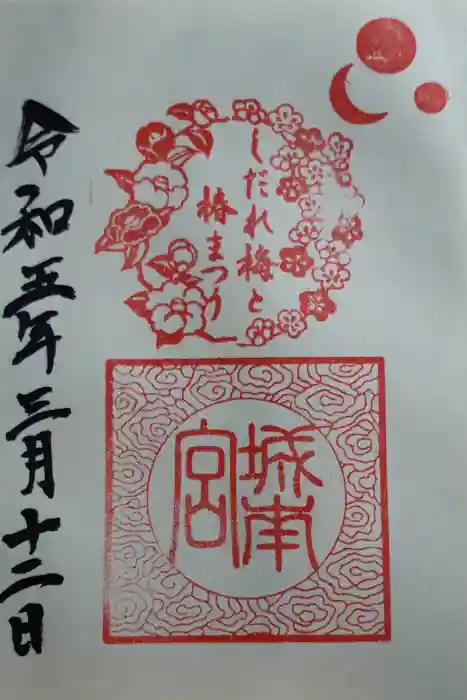 しだれ梅と
椿まつり
城南
宮
令和五年三月十二日